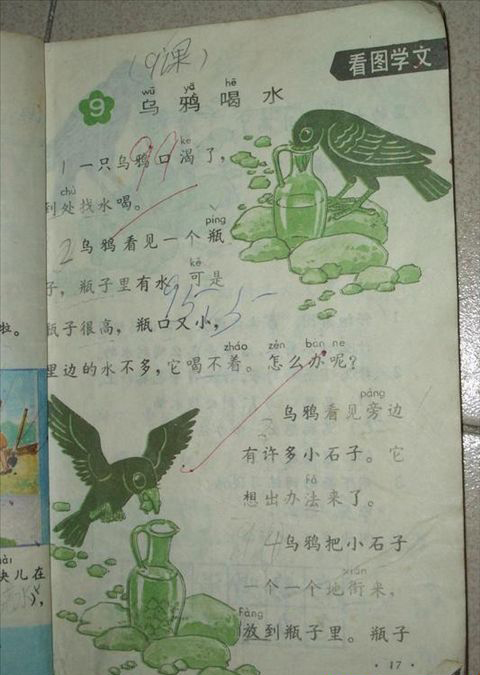 (9课)
看图学文
wū yā hē
9 乌鸦喝水
kě
1 一只乌鸦口渴了,
chù
到处找水喝。
píng
2 乌鸦看见一个瓶
kě
子,瓶子里有水。可是
瓶子很高,瓶口又小,
zháo zěn bàn ne
里边的水不多,它喝不着。怎么办呢?
páng
3 乌鸦看见旁边
有许多小石子。它
fǎ
想出办法来了。
4 乌鸦把小石子
xián
一个一个地衔来,
Fàng
放到瓶子里。瓶子
·17·
啦。
块儿在